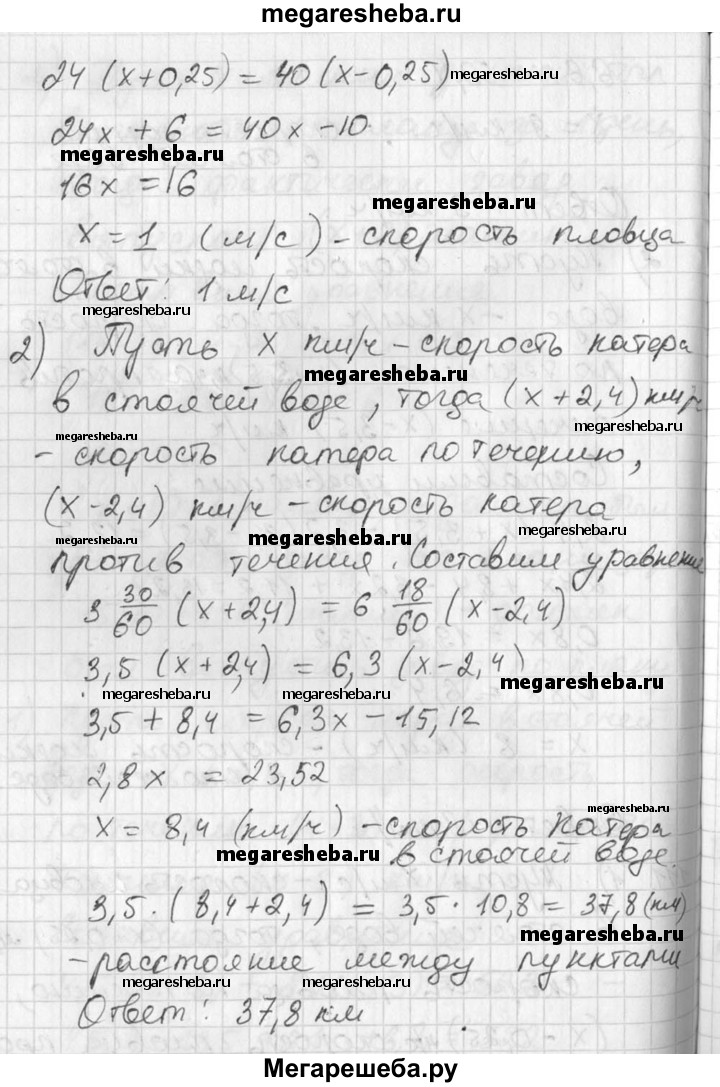 megaresheba.ru
24 (x+0,25) = 40 (x-0,25) megaresheba.ru
24x + 6 = 40x -10
megaresheba.ru
16x = 16
megaresheba.ru
x = 1 (м/с) - скорость пловца
Ответ: 1 м/с
megaresheba.ru
2) Пусть x км/ч - скорость катера
megaresheba.ru
в стоячей воде, тогда (x + 2,4) км/ч
megaresheba.ru megaresheba.ru
- скорость катера по течению,
(x - 2,4) км/ч - скорость катера
megaresheba.ru megaresheba.ru
против течения. Составим уравнение
3 30/60 (x + 2,4) = 6 18/60 (x - 2,4)
3,5 (x + 2,4) = 6,3 (x - 2,4)
megaresheba.ru megaresheba.ru megaresheba.ru
3,5 + 8,4 = 6,3x - 15,12
2,8x = 23,52
megaresheba.ru
x = 8,4 (км/ч) - скорость катера
megaresheba.ru в стоячей воде.
3,5 · (8,4 + 2,4) = 3,5 · 10,8 = 37,8 (км)
megaresheba.ru
- расстояние между пунктами
megaresheba.ru megaresheba.ru
Ответ: 37,8 км
Мегарешеба.ру